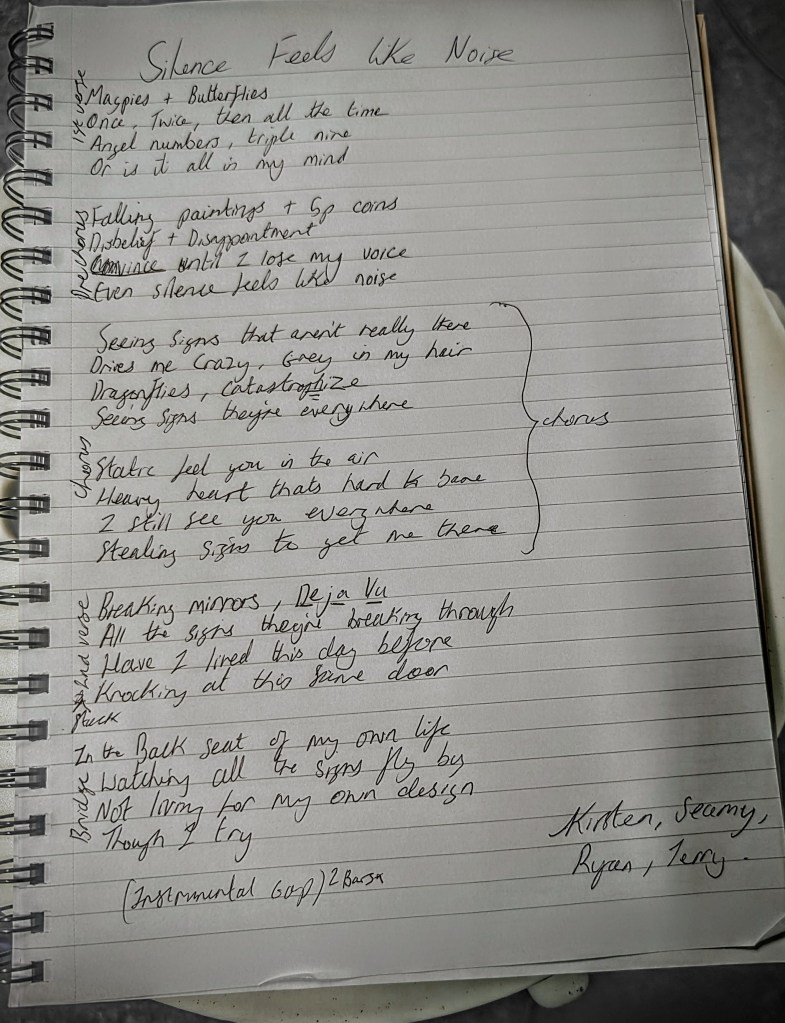 Silence Feels Like Noise
1st verse
Magpies + Butterflies
Once, Twice, then all the time
Angel numbers, triple nine
Or is it all in my mind
Pre chorus
Falling paintings + 5p coins
Disbelief + Disappointment
Convince until I lose my voice
Even silence feels like noise
Seeing signs that aren't really there
Drives me crazy, Grey in my hair
Dragonflies, catastrophize
Seeing signs they're everywhere
chorus
Chorus
Static feel you in the air
Heavy heart thats hard to bare
I still see you everywhere
Stealing signs to get me there
2nd verse
Breaking mirrors, Deja Vu
All the signs they're breaking through
Have I lived this day before
Knocking at this same door
Stuck
Bridge
In the Back seat of my own life
Watching all the signs fly by
Not living for my own design
Though I try
(Instrumental Gap) 2 Bars
Kirsten, Seamy,
Ryan, Terry.